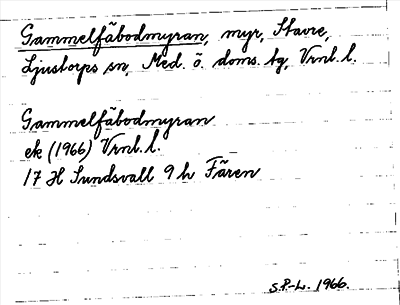 Gammelfäbodmyran, myr, Stavre,
Ljustorps sn, Med. ö. doms. tg, Vrnl. l.
Gammelfäbodmyran
ek (1966) Vrnl. l.
17 H Sundsvall 9 h Fären
S.P-L. 1966.